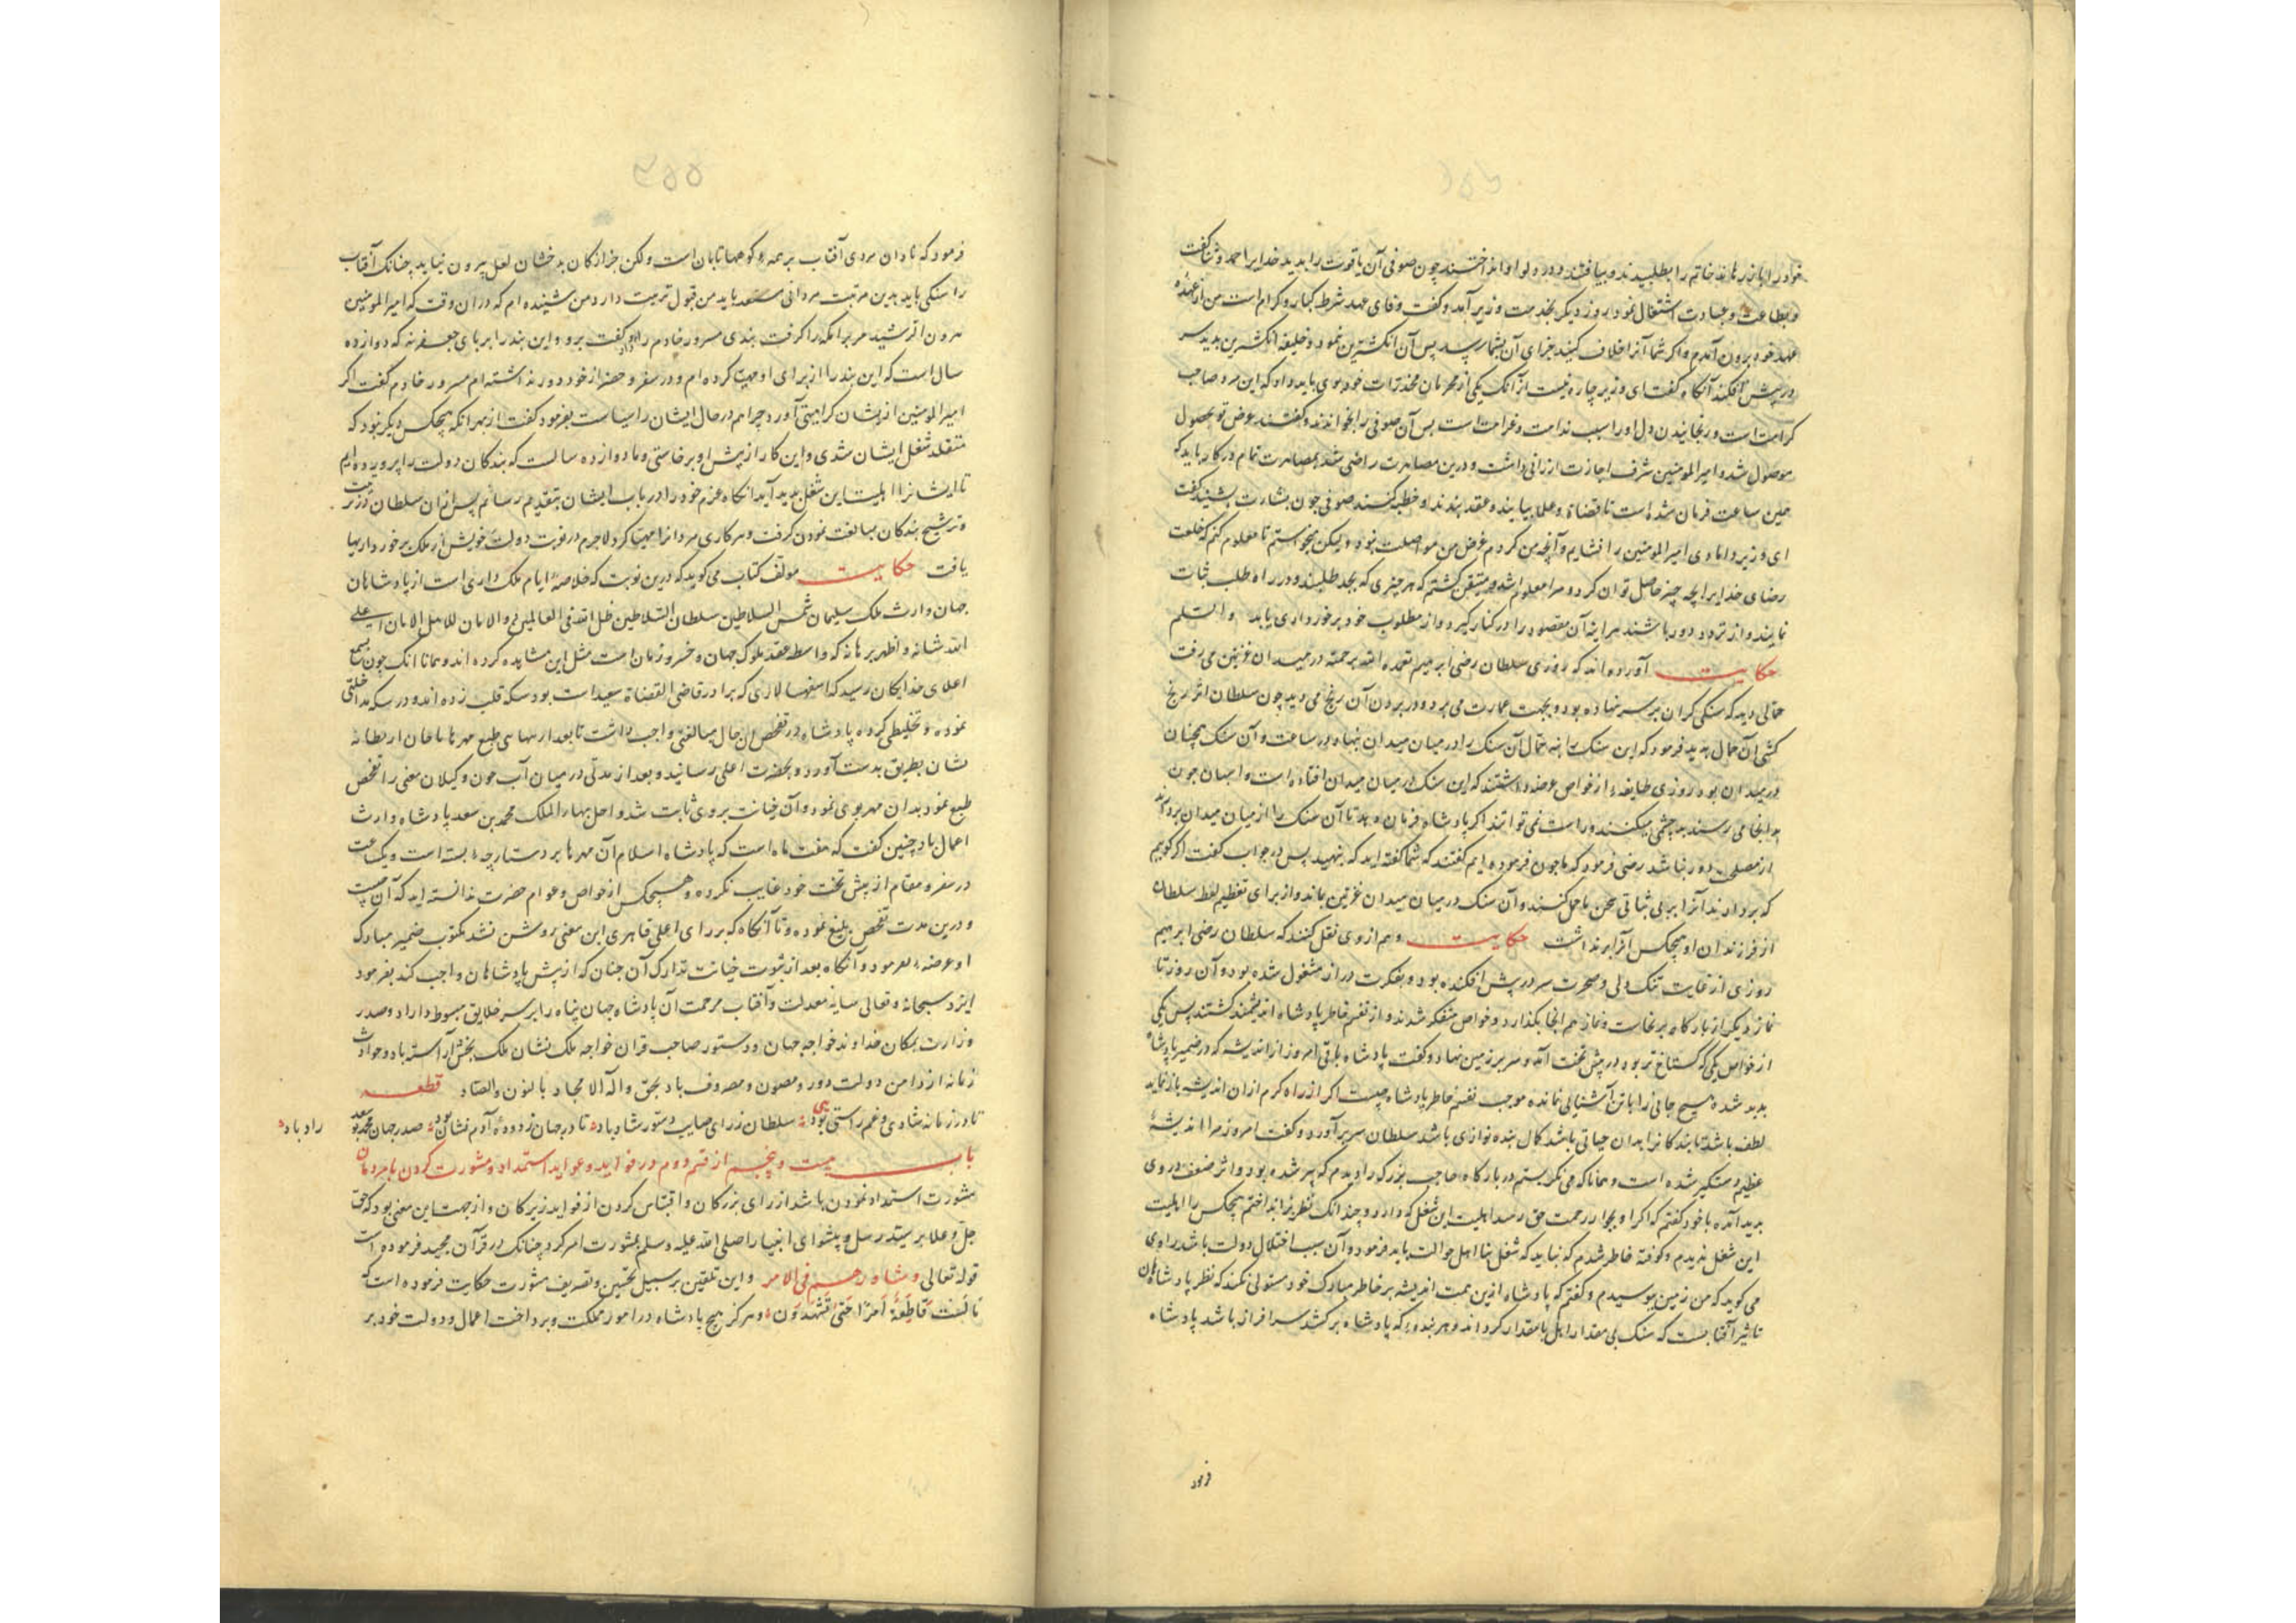 خود را بازرهاند خاتم را بطلبیدند و بیافتند و در دلو او انداختند چون صوفی آن یاقوت را بدید خدایرا حمد و ثنا گفت
و بطاعت و عبادت اشتغال نمود روز دیگر بخدمت وزیر آمد و گفت وفای عهد شرط کبار و کرام است من از عهدهٔ
عهد خود برون آمدم و اگر شما آنرا خلاف کنید جزای آن بشما رسد پس آن انگشترین نمود و خلیفه انگشترین بدید سر
در پیش افکند آنگاه گفت ای وزیر چاره نیست از آنک یکی از محرمان مخدرات خود بوی باید داد که این مرد صاحب
کرامت است و رنجانیدن دل او را سبب ندامت و غرامت است پس آن صوفی را بخواندند و گفتند عرض تو بحصول
موصول شد و امیرالمومنین شرف اجازت ارزانی داشت و درین مصاهرت راضی شد بمصاهرت تمام در کار باید که
همین ساعت فرمان شده است تا قضاة و علما بیایند و عقد بندند و خطبه کنند صوفی چون بشارت بشنید گفت
ای وزیر دامادی امیرالمومنین را نشایم و آنچه من کردم غرض من مواصلت نبود و لیکن بخواستم تا معلوم کنم که خلعت
رضای خدایرا بچه چیز حاصل توان کرد و مرا معلوم شد و متیقن گشتم که هر چیزی که بجد طلبند و در راه طلب ثبات
نمایند و از تردد دور باشند هر آینه آن مقصود را در کنار گیرد و از مطلوب خود برخورداری یابد والسلم
حکایت آورده اند که روزی سلطان رضی ابرهیم تغمده الله برحمته در میدان غزنین می رفت
حمالی دید که سنگی گران بر سر نهاده بود و بجهت عمارت می برد و در بردن آن رنج می دید چون سلطان اثر رنج
کشی آن حمال بدید فرمود که این سنک را بنه حمال آن سنک را در میان میدان بنهاد و در ساعت و آن سنک همچنان
در میدان بود روزی طایفهٔ از خواص عرضه داشتند که این سنک در میان میدان افتاده است و اسبان چون
بدانجا می رسند بد چشمی میکنند و راست نمی توانند اگر پادشاه فرمان دهد تا آن سنک را از میان میدان بردارند
از مصلحی دور نباشد رضی فرمود که ما چون فرموده ایم گفتند که شما گفته اید که بنهید پس در جواب گفت اگر گوییم
که بردارند آنرا بر بی ثباتی سخن ما حمل کنند و آن سنک در میان میدان غزنین بماند و از برای تعظیم لفظ سلطان
از فرزندان او هیچکس آنرا برنداشت حکایت و هم از وی نقل کنند که سلطان رضی ابرهیم
روزی از غایت تنک دلی و ضجرت سر در پیش افکنده بود و بفکرت دراز مشغول شده بود و آن روز تا
نماز دیگر از بارگاه برنخاست و نماز هم آنجا بگذارد و خواص متفکر شدند و از تقسم خاطر پادشاه اندیشمند گشتند پس یکی
از خواص یکی که گستاخ تر بود در پیش تخت آمد و سر بر زمین نهاد و گفت پادشاه باقی امروز از اندیشه که در ضمیر پادشاه
پدید شده هیچ جانی را با تن آشنایی نمانده موجب تقسم خاطر پادشاه چیست اگر از راه کرم از آن اندیشه باز نماید
لطف باشد تا بندگانرا بدان حیاتی باشد کمال بنده نوازی باشد سلطان سر برآورد و گفت امروز مرا اندیشهٔ
عظیم دستگیر شده است و همانا که می نگریستم در بارگاه حاجب بزرگ را دیدم که پیر شده بود و اثر ضعف در وی
پدید آمده با خود گفتم که اگر او بجوار رحمت حق رسد اهلیت این شغل که دارد و چندانک نظر بر انداختم هیچکس را اهلیت
این شغل ندیدم و کوفته خاطر شدم که نباید که شغل بنا اهل حوالت باید فرمود و آن سبب اختلال دولت باشد راوی
می گوید که من زمین ببوسیدم و گفتم که پادشاه ازین جهت اندیشه بر خاطر مبارک خود مستولی نکند که نظر پادشاهان
تاثیر آفتابست که سنک بی مقدار را لعل با مقدار گرداند و هر بندهٔ که پادشاه برکشد سرافراز باشد پادشاه
فرمود
فرمود که نادان مردی آفتاب بر همه کوهها تابان است ولکن جز از کان بدخشان لعل بیرون نیاید چنانک آفتاب
را سنگی باید بدین مرتبت مردانی مستعد باید من قبول تربیت دارد من شنیده ام که در آن وقت که امیرالمومنین
هرون الرشید مر برامکه را گرفت بندی مسرور خادم را داد و گفت برو و این بند را بر پای جعفر نه که دوازده
سال است که این بند را از برای او مهیا کرده ام و در سفر و حضر از خود دور نداشته ام مسرور خادم گفت اگر
امیرالمومنین ازیشان کراهیتی آورد چرا هم در حال ایشان را سیاست بفرمود گفت از بهر آنکه هیچکس دیگر نبود که
متقلد شغل ایشان شدی و این کار از پیش او برخاستی و ما دوازده سالست که بندگان دولت را پرورده ایم
تا ایشانرا اهلیت این شغل پدید آید آنگاه عزم خود را در باب ایشان بتقدیم رسانم پس از آن سلطان در تربیت
و ترشیح بندگان مبالغت نمودن گرفت و هر کاری مردانرا مهیا کرد لاجرم در نوبت دولت خویش از ملک برخورداریها
یافت حکایت مولف کتاب می گوید که درین نوبت که خلاصهٔ ایام ملک داری است از پادشاهان
جهان وارث ملک سلیمان شمس السلاطین سلطان السلاطین ظل الله فی العالمین و الامان للاهل الایمان اعلی
الله شانه و اظهر برهانه که واسطه عقد ملوک جهان و خسرو زمان است مثل این مشاهده کرده اند و همانا آنک چون بسمع
اعلای خدایگان رسید که اسفهسالاری که برادر قاضی القضاة سعید است بود سکه قلب زده اند و در سکه مداخلتی
نموده و تخلیطی کرده پادشاه در تفحص آن حال مبالغتی واجب داشت تا بعد از
نشان بطریق بدست آورد و بحضرت اعلی رسانید و بعد از مدتی در میان آب جون و کیلان معنی را تفحص
طبع نمود بدان مهر بوی نمود و آن خیانت بروی ثابت شد و اجل بهاء الملک محمد بن سعد پادشاه وارث
اعمال باد چنین گفت که هفت ماه است که پادشاه اسلام آن مهرها بر دستارچهٔ بسته است و یک ساعت
در سفر و مقام از پیش تخت خود غایب نکرده و هیچکس از خواص و عوام حضرت ندانسته اند که آن چیست
و درین مدت تفحص بلیغ نموده و تا آنگاه که بر رای اعلی قاهری این معنی روشن نشد مکتوب ضمیر مبارک
او عرضه نفرمود و آنگاه بعد از ثبوت خیانت تدارک آن چنان که از پیش پادشاهان واجب کند بفرمود
ایزد سبحانه و تعالی سایه معدلت و آفتاب مرحمت آن پادشاه جهان پناه را بر سر خلایق مبسوط داراد و صدر
وزارت بمکان خداوند خواجه جهان و دستور صاحب قران خواجه ملک نشان ملک بخش آراسته باد و حوادث
زمانه از دامن دولت دور و مصون و مصروف باد بحق و اله الامجاد بالنون و الصاد قطعه
تا در زمانه شادی و غم راستی بود سلطان ز رای صایب دستور شاد باد تا در جهان ز دودهٔ آدم نشان بود صدر جهان محمد بو سعد راد باد
باب بیست و پنجم از قسم دوم در فواید و عواید استمداد و مشورت کردن با مردمان
مشورت استمداد نمودن باشد از رای بزرگان و اقتباس کردن از فواید زیرکان و از جهت این معنی بود که حق
جل و علا بر سید رسل و پیشوای انبیا را صلی الله علیه و سلم بمشورت امر کرد چنانک در قرآن مجید فرموده است
قوله تعالی و شاورهم فی الامر و این تلقین بر سبیل تحسین و تعریف مشورت حکایت فرموده است که
مَا کُنتُ قَاطِعَةً اَمْرًا حَتّی تَشْهَدُونِ و هرگز هیچ پادشاه در امور مملکت و پرداخت اعمال و دولت خود بر